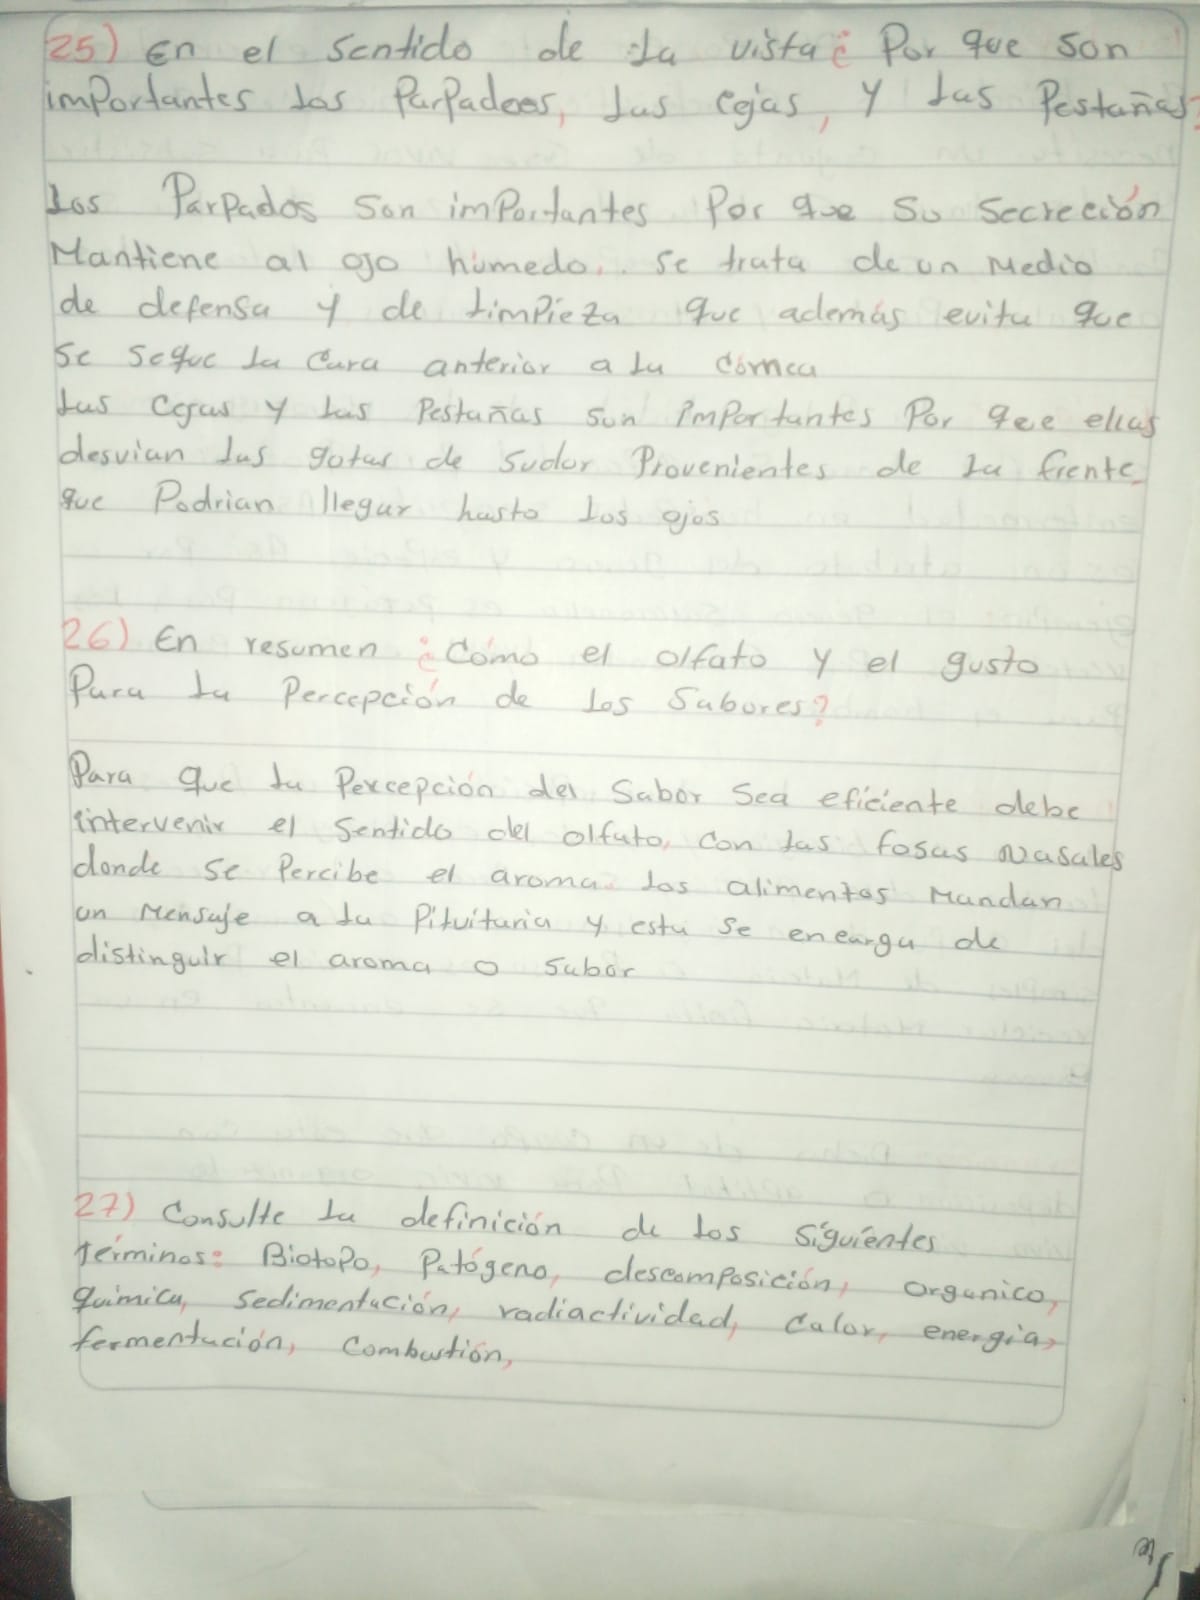 25) En el sentido de la vista ¿ Por que son
importantes los Parpadoos, las cejas, y las Pestañas?
los Parpados son importantes Por que su secreción
Mantiene al ojo húmedo. se trata de un Medio
de defensa y de limpieza que además evita que
se seque la cara anterior a la cornea
las cejas y las Pestañas son importantes Por que ellas
desvian las gotas de sudor Provenientes de la frente
que Podrian llegar hasta los ojos
26) En resumen ¿Cómo el olfato y el gusto
Para la Percepción de los Sabores?
Para que la Percepción del Sabor Sea eficiente debe
intervenir el sentido del olfato, con las fosas Nasales
donde se Percibe el aroma los alimentos Mandan
un Mensaje a la Pituitaria y esta se encarga de
distinguir el aroma o sabor
27) Consulte la definición de los siguientes
términos: Biotopo, Patógeno, descomposición, organico,
química, sedimentación, radiactividad, calor, energía,
fermentación, combustión,